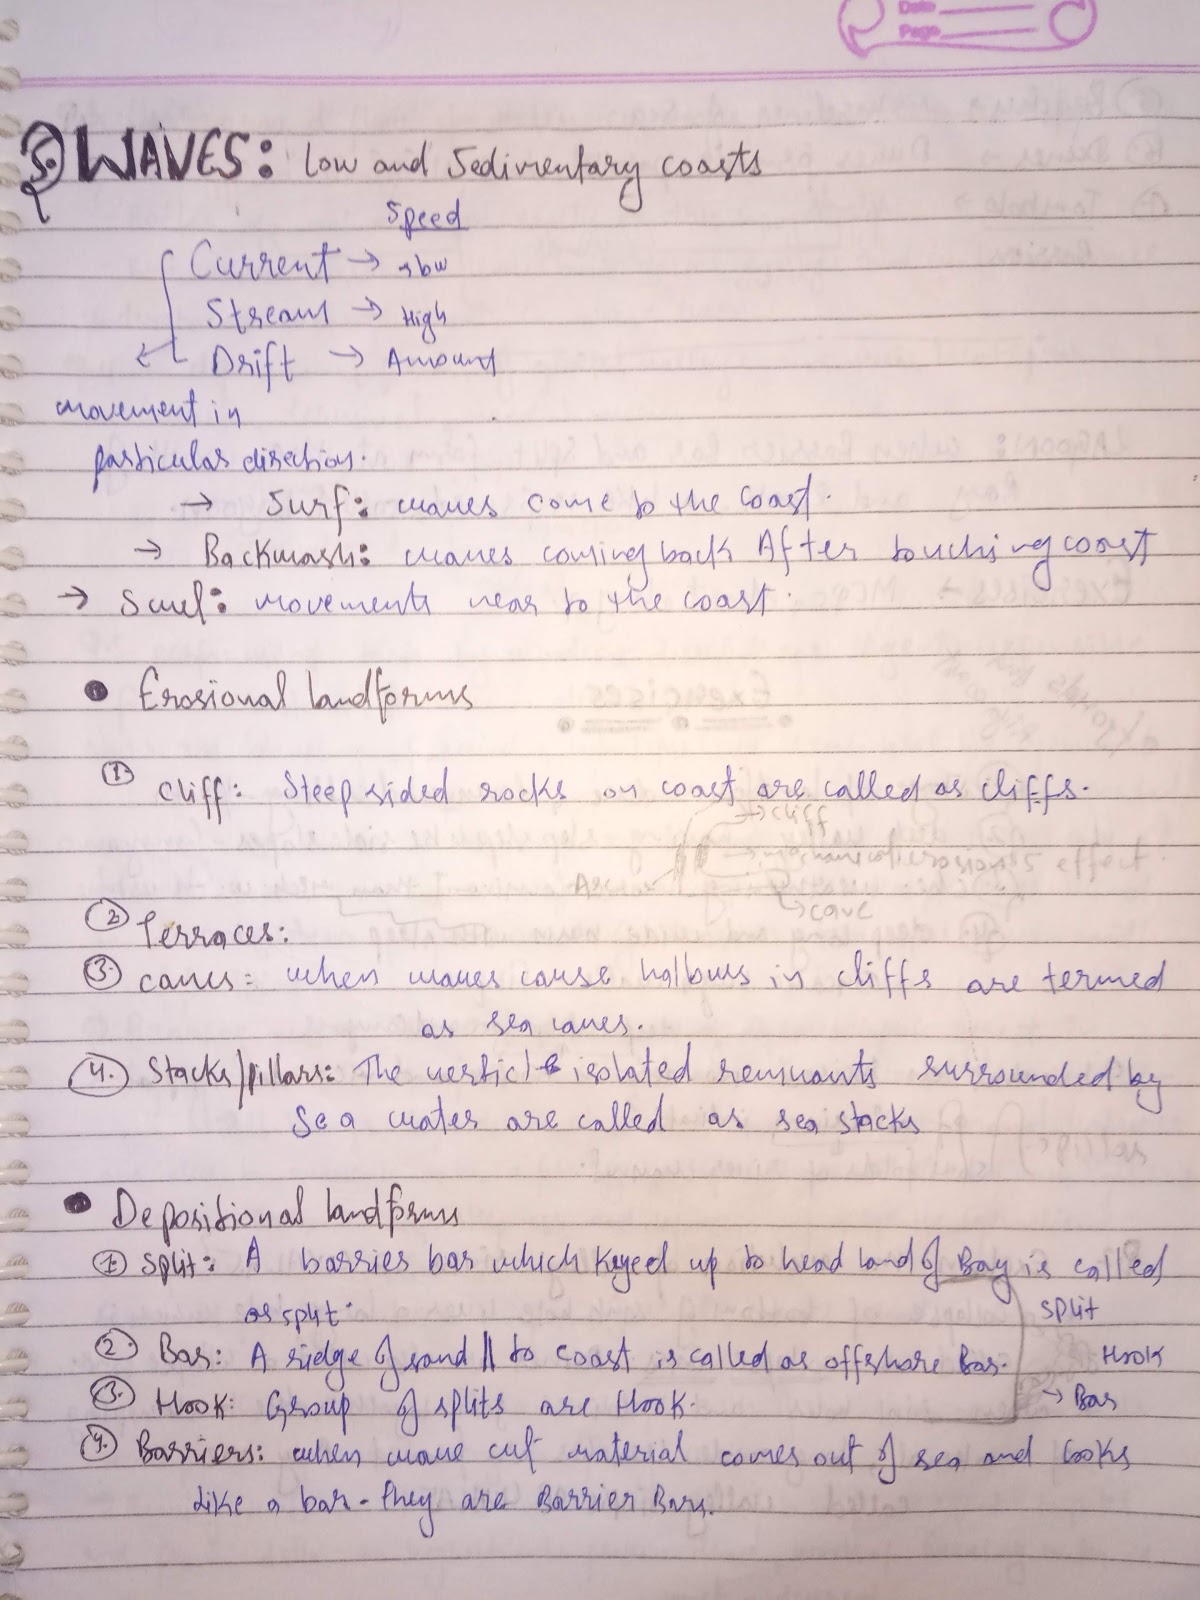 Date
Page
5. WAVES: Low and Sedimentary coasts
Speed
Current → slow
Stream → High
Drift → Amount
movement in
particular direction.
→ Surf: waves come to the coast.
→ Backwash: waves coming back After touching coast
→ Swel: movements near to the coast.
• Erosional landforms
① Cliff: Steep sided rocks on coast are called as cliffs.
→ cliff
effect
→ cave
② Terraces:
③ caves: when waves cause hallows in cliffs are termed
as sea caves.
④ Stacks/pillars: The isolated remnants surrounded by
Sea water are called as sea stacks
• Depositional landforms
① Split: A barrier bar which Keyed up to head land of Bay is called
as split.
split
② Bar: A ridge of sand || to coast is called as offshore Bar.
Hook
③ Hook: Group of splits are Hook.
→ Bar
④ Barriers: when wave cut material comes out of sea and looks
like a bar - they are Barrier Bars.